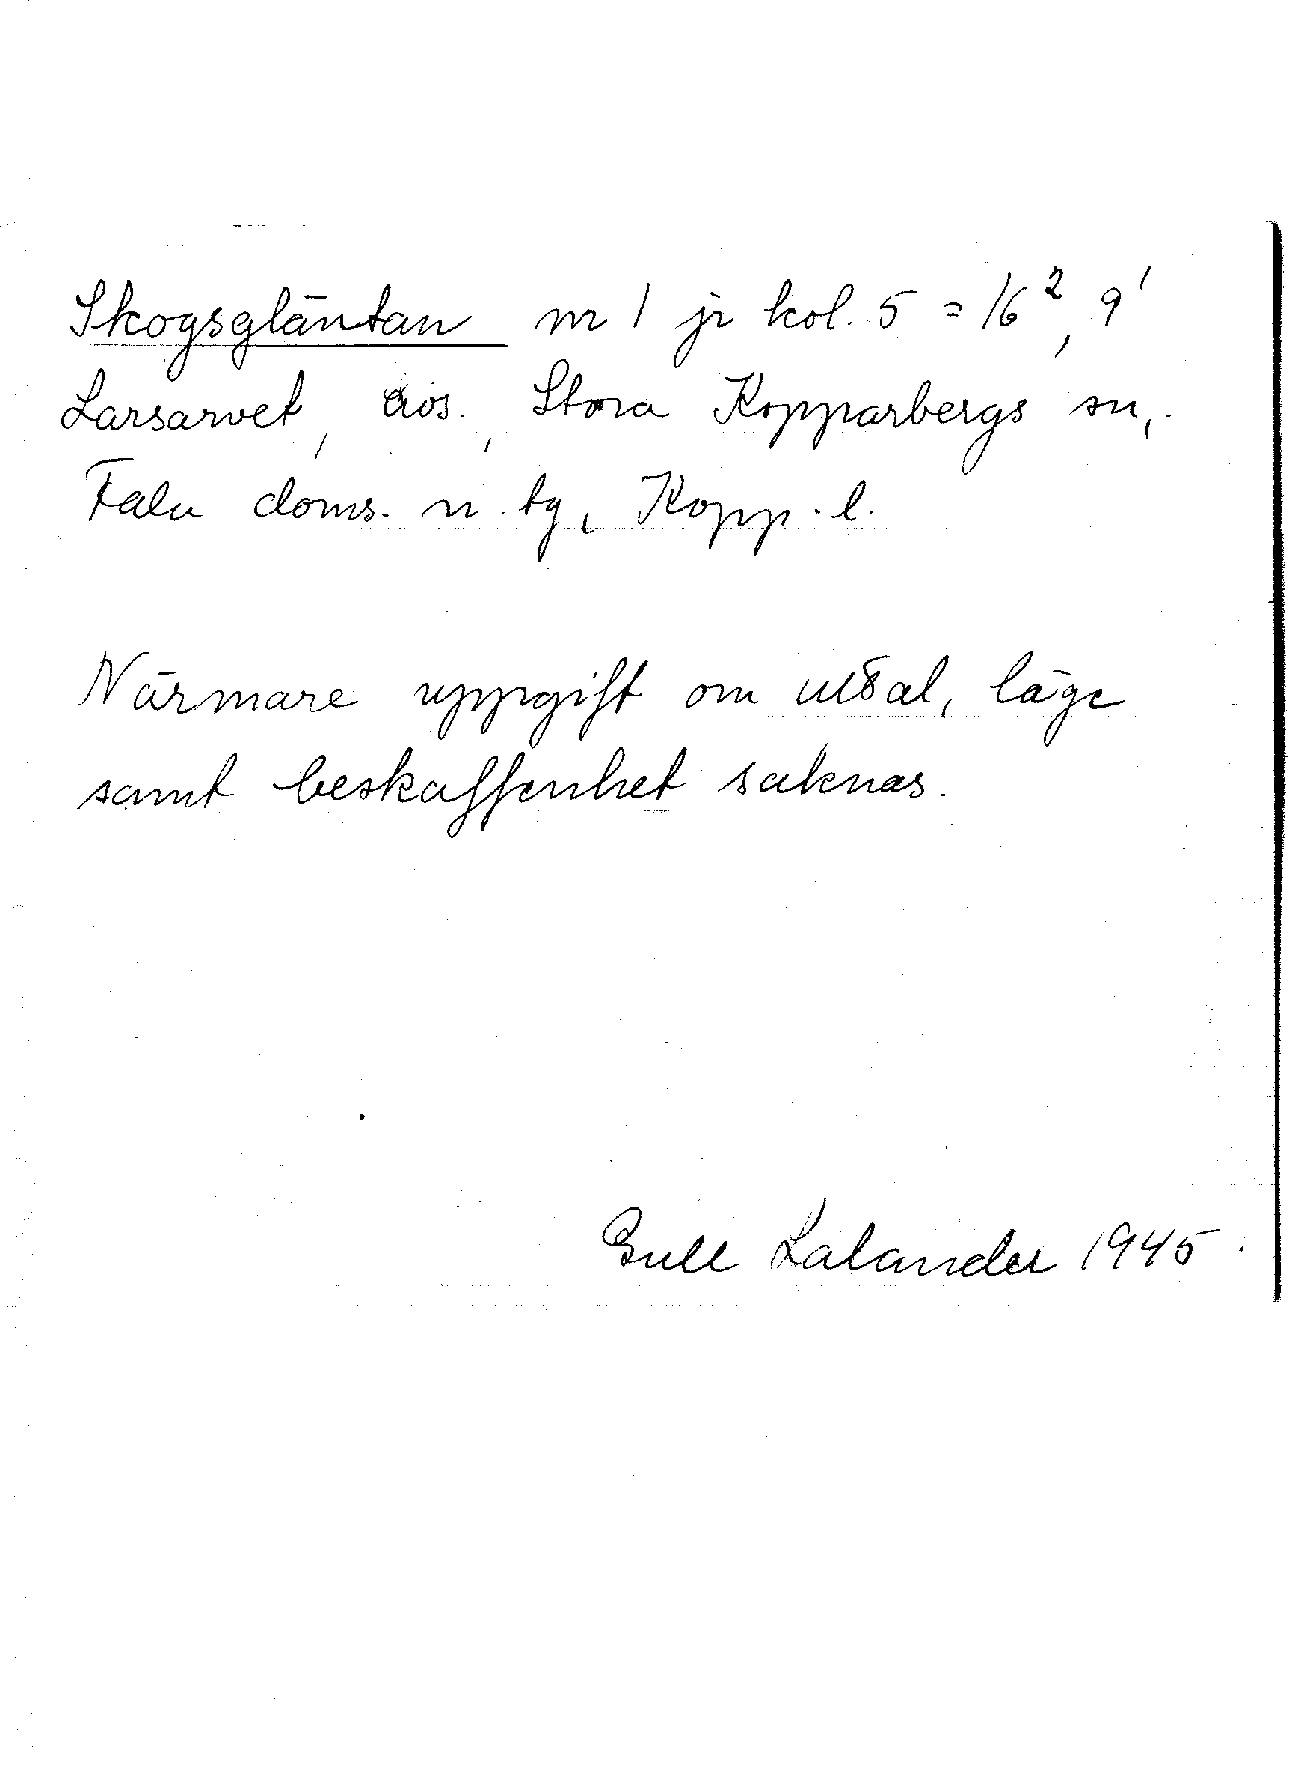 Skogsgläntan nr 1 jr kol. 5 = 16², 9¹
Larsarvet, Aros, Stora Kopparbergs sn,
Falu doms. n. tg, Kopp. l.
Närmare uppgift om uttal, läge
samt beskaffenhet saknas.
Gull Lalander 1945.